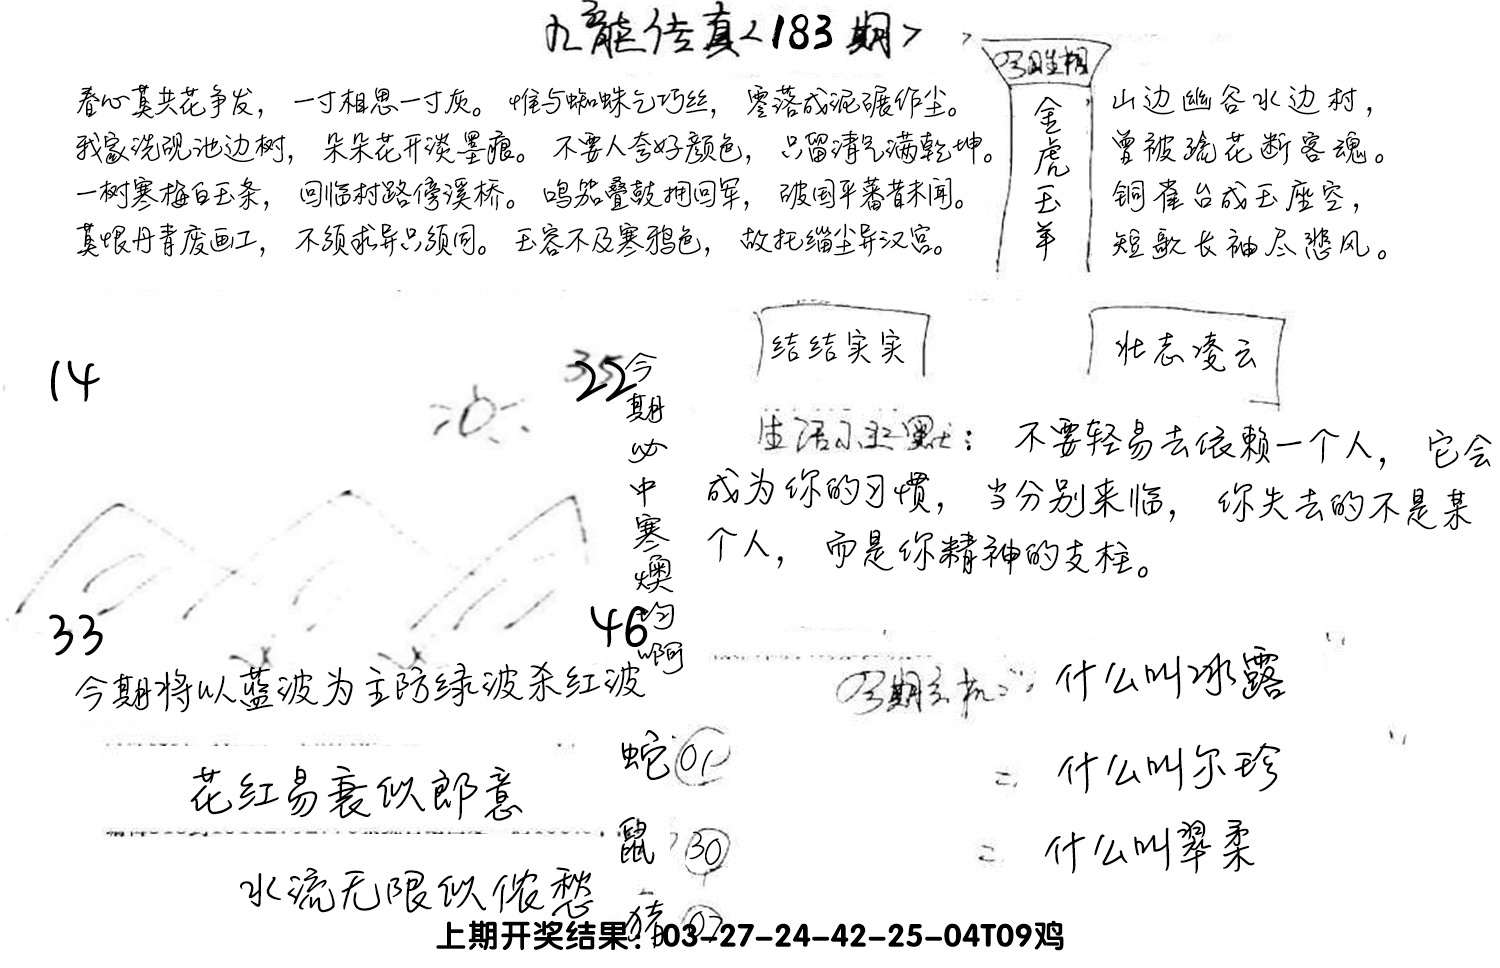 九龍传真<183期>
春心莫共花争发，一寸相思一寸灰。惟与蜘蛛乞巧丝，零落成泥碾作尘。
我家洗砚池边树，朵朵花开淡墨痕。不要人夸好颜色，只留清气满乾坤。
一树寒梅白玉条，回临村路傍溪桥。鸣笳叠鼓拥回军，破国平蕃昔未闻。
莫恨丹青废画工，不须求异只须同。玉容不及寒鸦色，故托缁尘异汉宫。
金虎玉羊
山边幽谷水边村，
曾被疏花断客魂。
铜雀台成玉座空，
短歌长袖尽悲风。
结结实实
壮志凌云
14
22
今期必中寒燠均啊
33
46
今期将以蓝波为主防绿波杀红波
不要轻易去依赖一个人，它会
成为你的习惯，当分别来临，你失去的不是某
个人，而是你精神的支柱。
什么叫冰露
什么叫尔珍
什么叫翠柔
花红易衰似郎意
水流无限似侬愁
蛇 01
鼠 30
猪 07
上期开奖结果：03-27-24-42-25-04T09鸡